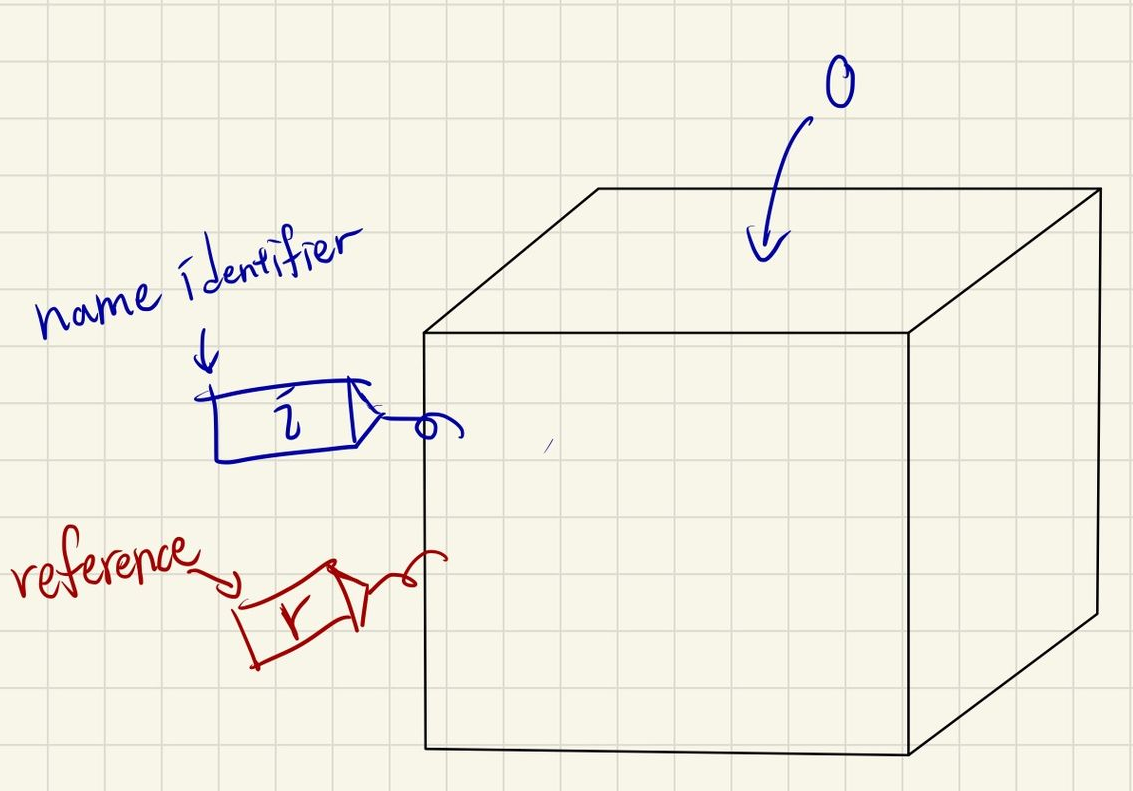 0
name identifier
i
reference
r